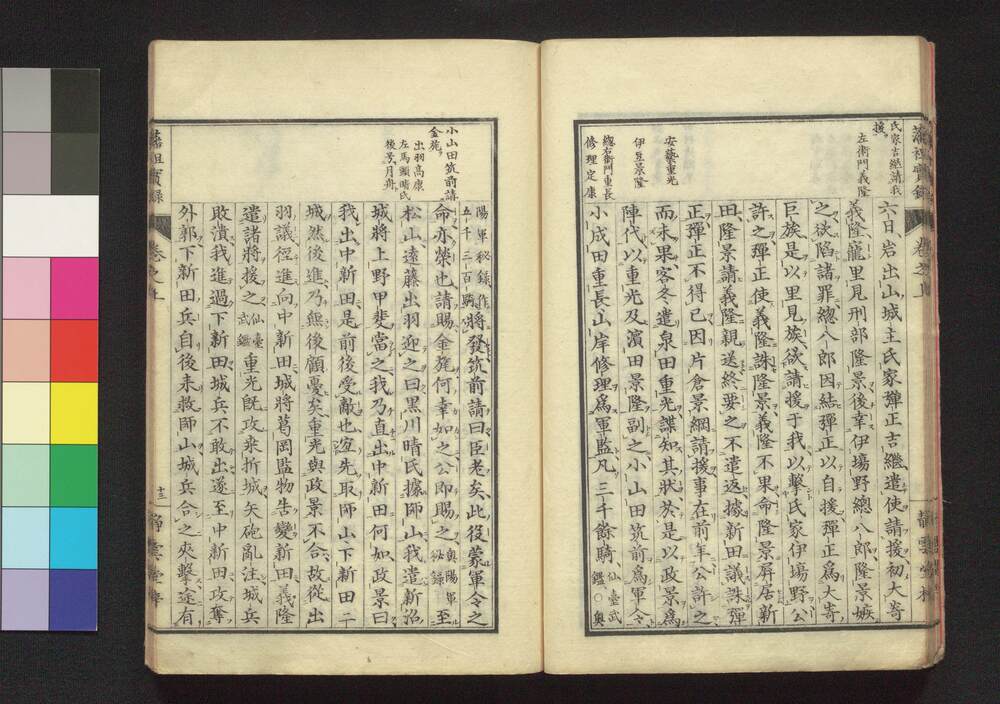 氏家吉継請我
援。
左衛門義隆
安藝重光
伊豆景隆
總右衛門重長
修理定康
六日、岩出山城主氏家彈正吉繼遣使請援初大崎
義隆寵里見刑部隆景後幸伊塲野總八郎隆景嫉
之欲陷諸罪、總八郎因結彈正以自援彈正爲大崎
巨族是以里見族欲請援于我、以擊氏家伊塲野公
許之彈正使義隆誅隆景義隆不果命隆景屏居新
田、隆景請義隆親送終要之不遣返據新田議誅彈
正彈正不得已因片倉景綱請援事在前年公許之
而未果客冬遣泉田重光諜知其狀於是以政景爲
陣代以重光及濱田景隆副之小山田筑前爲軍令、
小成田重長山岸修理爲軍監凡三千餘騎仙臺武
鑑○奧
小山田筑前請
金麾。
出羽高康
左馬頭晴氏
後号月舟。
陽軍秘錄作
五千三百騎
將發筑前請曰臣老矣、此役蒙軍令之
命亦榮也請賜金麾何幸如之公即賜之奧陽軍
秘錄至
松山、遠藤出羽迎之曰黒川晴氏據師山我遣新沼
城將上野甲斐當之我乃直出中新田何如政景曰
我出中新田是前後受敵也宜先取師山下新田二
城然後進乃無後顧憂矣重光與政景不合故從出
羽議徑進向中新田城將葛岡監物告變新田義隆
遣諸將援之仙臺
武鑑重光既攻乗折城矢砲亂注城兵
敗潰我進過下新田城兵不敢出遂至中新田攻奪
外郭下新田兵自後来救師山城兵合之夾擊途有
藩祖實錄
卷之上
十三
靜雲堂梓